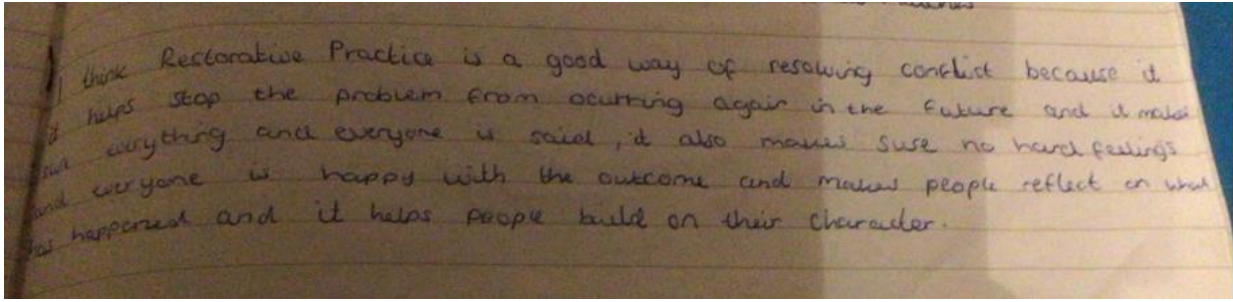 I think Restorative Practice is a good way of resolving conflict because it
it helps stop the problem from ocurring again in the future and it makes
sure everything and everyone is said, it also makes sure no hard feelings
and everyone is happy with the outcome and makes people reflect on what
has happened and it helps people build on their character.